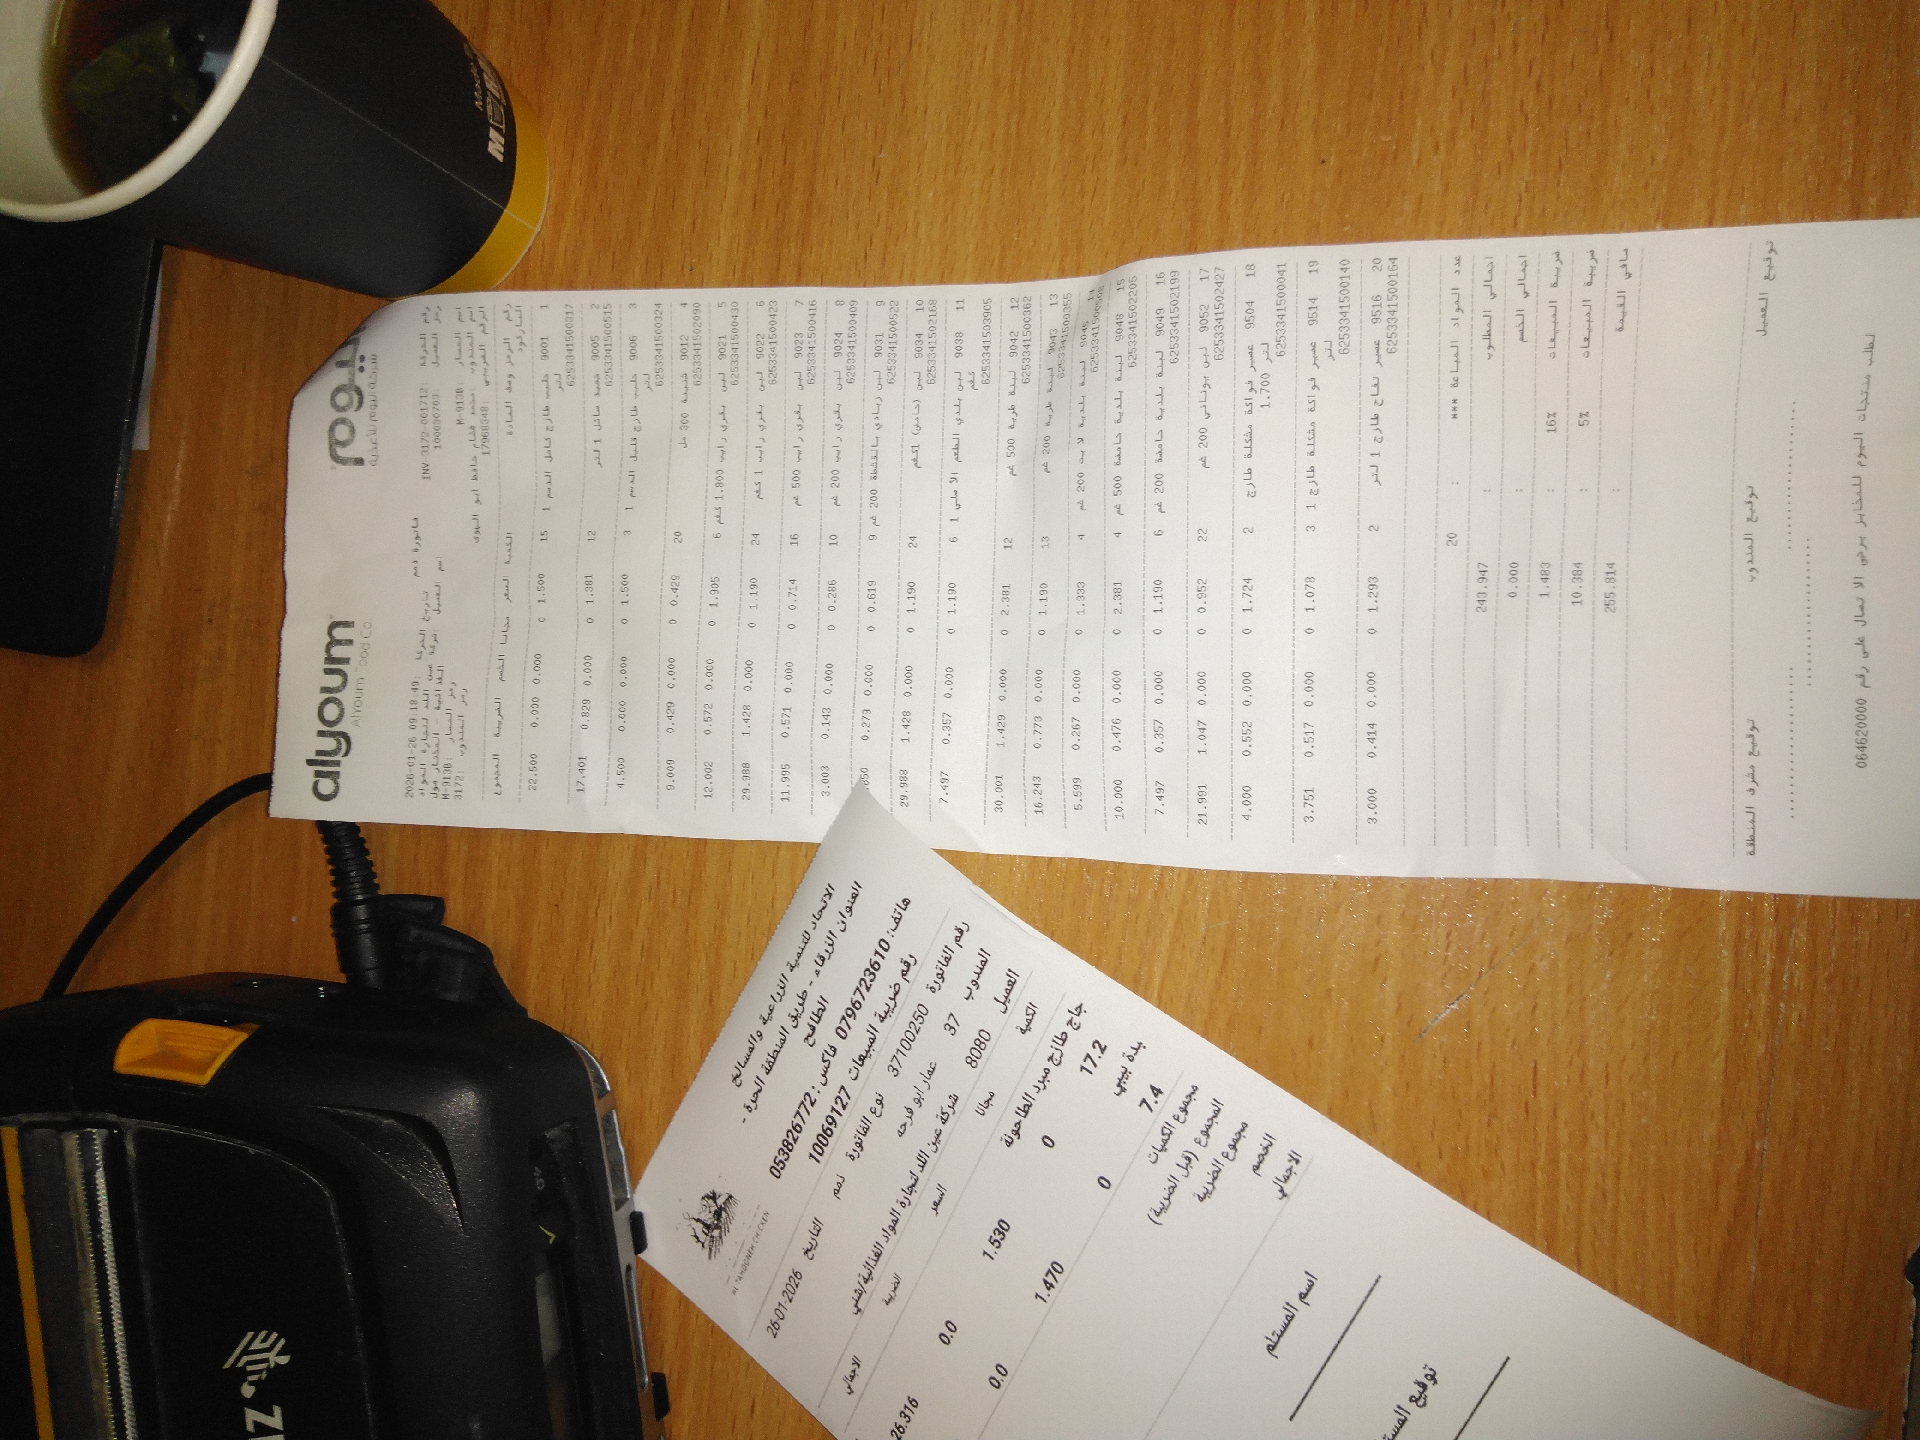 alyoum
Alyoum Food Co.
اليوم
شركة اليوم للأغذية
رقم الحركة: INV-3172-001712 فاتورة ذمم
تاريخ الحركة: 2026-01-26 09:18:49
رمز العميل: 100030703
اسم العميل: شركة عين الله لتجارة المواد الغذائية - المختار مول
اسم المسار: M-913B رمز المسار: M-913B
اسم المندوب: محمد هشام حافظ ابو الهوى
رمز المندوب: 3172
الرقم الضريبي: 17968348
رقم الرمز وصف المادة الكمية السعر مجانا الخصم الضريبة المجموع
الباركود
1 9001 حليب طازج كامل الدسم 1 لتر 15 1.500 0 0.000 0.000 22.500
6253341500317
2 9005 جميد سائل 1 لتر 12 1.381 0 0.000 0.829 17.401
6253341500515
3 9006 حليب طازج قليل الدسم 1 لتر 3 1.500 0 0.000 0.000 4.500
6253341500324
4 9012 شنينة 300 مل 20 0.429 0 0.000 0.429 9.009
6253341502090
5 9021 لبن بقري رايب 1.800 كغم 6 1.905 0 0.000 0.572 12.002
6253341500430
6 9022 لبن بقري رايب 1 كغم 24 1.190 0 0.000 1.428 29.988
6253341500423
7 9023 لبن بقري رايب 500 غم 16 0.714 0 0.000 0.571 11.995
6253341500416
8 9024 لبن بقري رايب 200 غم 10 0.286 0 0.000 0.143 3.003
6253341500409
9 9031 لبن زبادي بالقشطة 200 غم 9 0.619 0 0.000 0.279
6253341500522
10 9034 لبن (حامض) 1كغم 24 1.190 0 0.000 1.428 29.988
6253341502168
11 9038 لبن بلدي الطعم الاصلي 1 كغم 6 1.190 0 0.000 0.357 7.497
6253341503905
12 9042 لبنة طرية 500 غم 12 2.381 0 0.000 1.429 30.001
6253341500362
13 9043 لبنة طرية 200 غم 13 1.190 0 0.000 0.773 16.243
6253341500355
14 لبنة بلدية لايت 200 غم 4 1.333 0 0.000 0.267 5.599
15 9048 لبنة بلدية حامضة 500 غم 4 2.381 0 0.000 0.476 10.000
6253341502205
16 9049 لبنة بلدية حامضة 200 غم 6 1.190 0 0.000 0.357 7.497
6253341502199
17 9052 لبن يوناني 200 غم 22 0.952 0 0.000 1.047 21.991
6253341502427
18 9504 عصير فواكة مشكلة طازج 1.700 لتر 2 1.724 0 0.000 0.552 4.000
6253341500041
19 9514 عصير فواكة مشكلة طازج 1 لتر 3 1.078 0 0.000 0.517 3.751
6253341500140
20 9516 عصير تفاح طازج 1 لتر 2 1.293 0 0.000 0.414 3.000
6253341500164
عدد المواد المباعة *** : 20
اجمالي المطلوب : 243.947
اجمالي الخصم : 0.000
ضريبة المبيعات 16% : 1.483
ضريبة المبيعات 5% : 10.384
صافي القيمة : 255.814
توقيع العميل توقيع المندوب توقيع مشرف المنطقة
لطلب منتجات اليوم للمخابز يرجى الاتصال على رقم 064620000
AL TAHOONEH CHICKEN
الاتحاد للتنمية الزراعية والمسالخ
العنوان الزرقاء - طريق المنطقة الحرة - الطافح
هاتف: 0796723610 فاكس: 053826772
رقم ضريبة المبيعات 10069127
رقم الفاتورة 37100250 نوع الفاتورة ذمم التاريخ 26-01-2026
المندوب 37 عمار ابو فرحه
العميل 8080 شركة عين الله لتجارة المواد الغذائية
الكمية مجانا السعر الضريبة الاجمالي
جاج طازج مبرد الطاحونة
17.2 0 1.530 0.0 26.316
7.4 0 1.470 0.0
مجموع الكميات
المجموع (قبل الضريبة)
مجموع الضريبة
الخصم
الاجمالي
اسم المستلم
توقيع
MOVENPICK